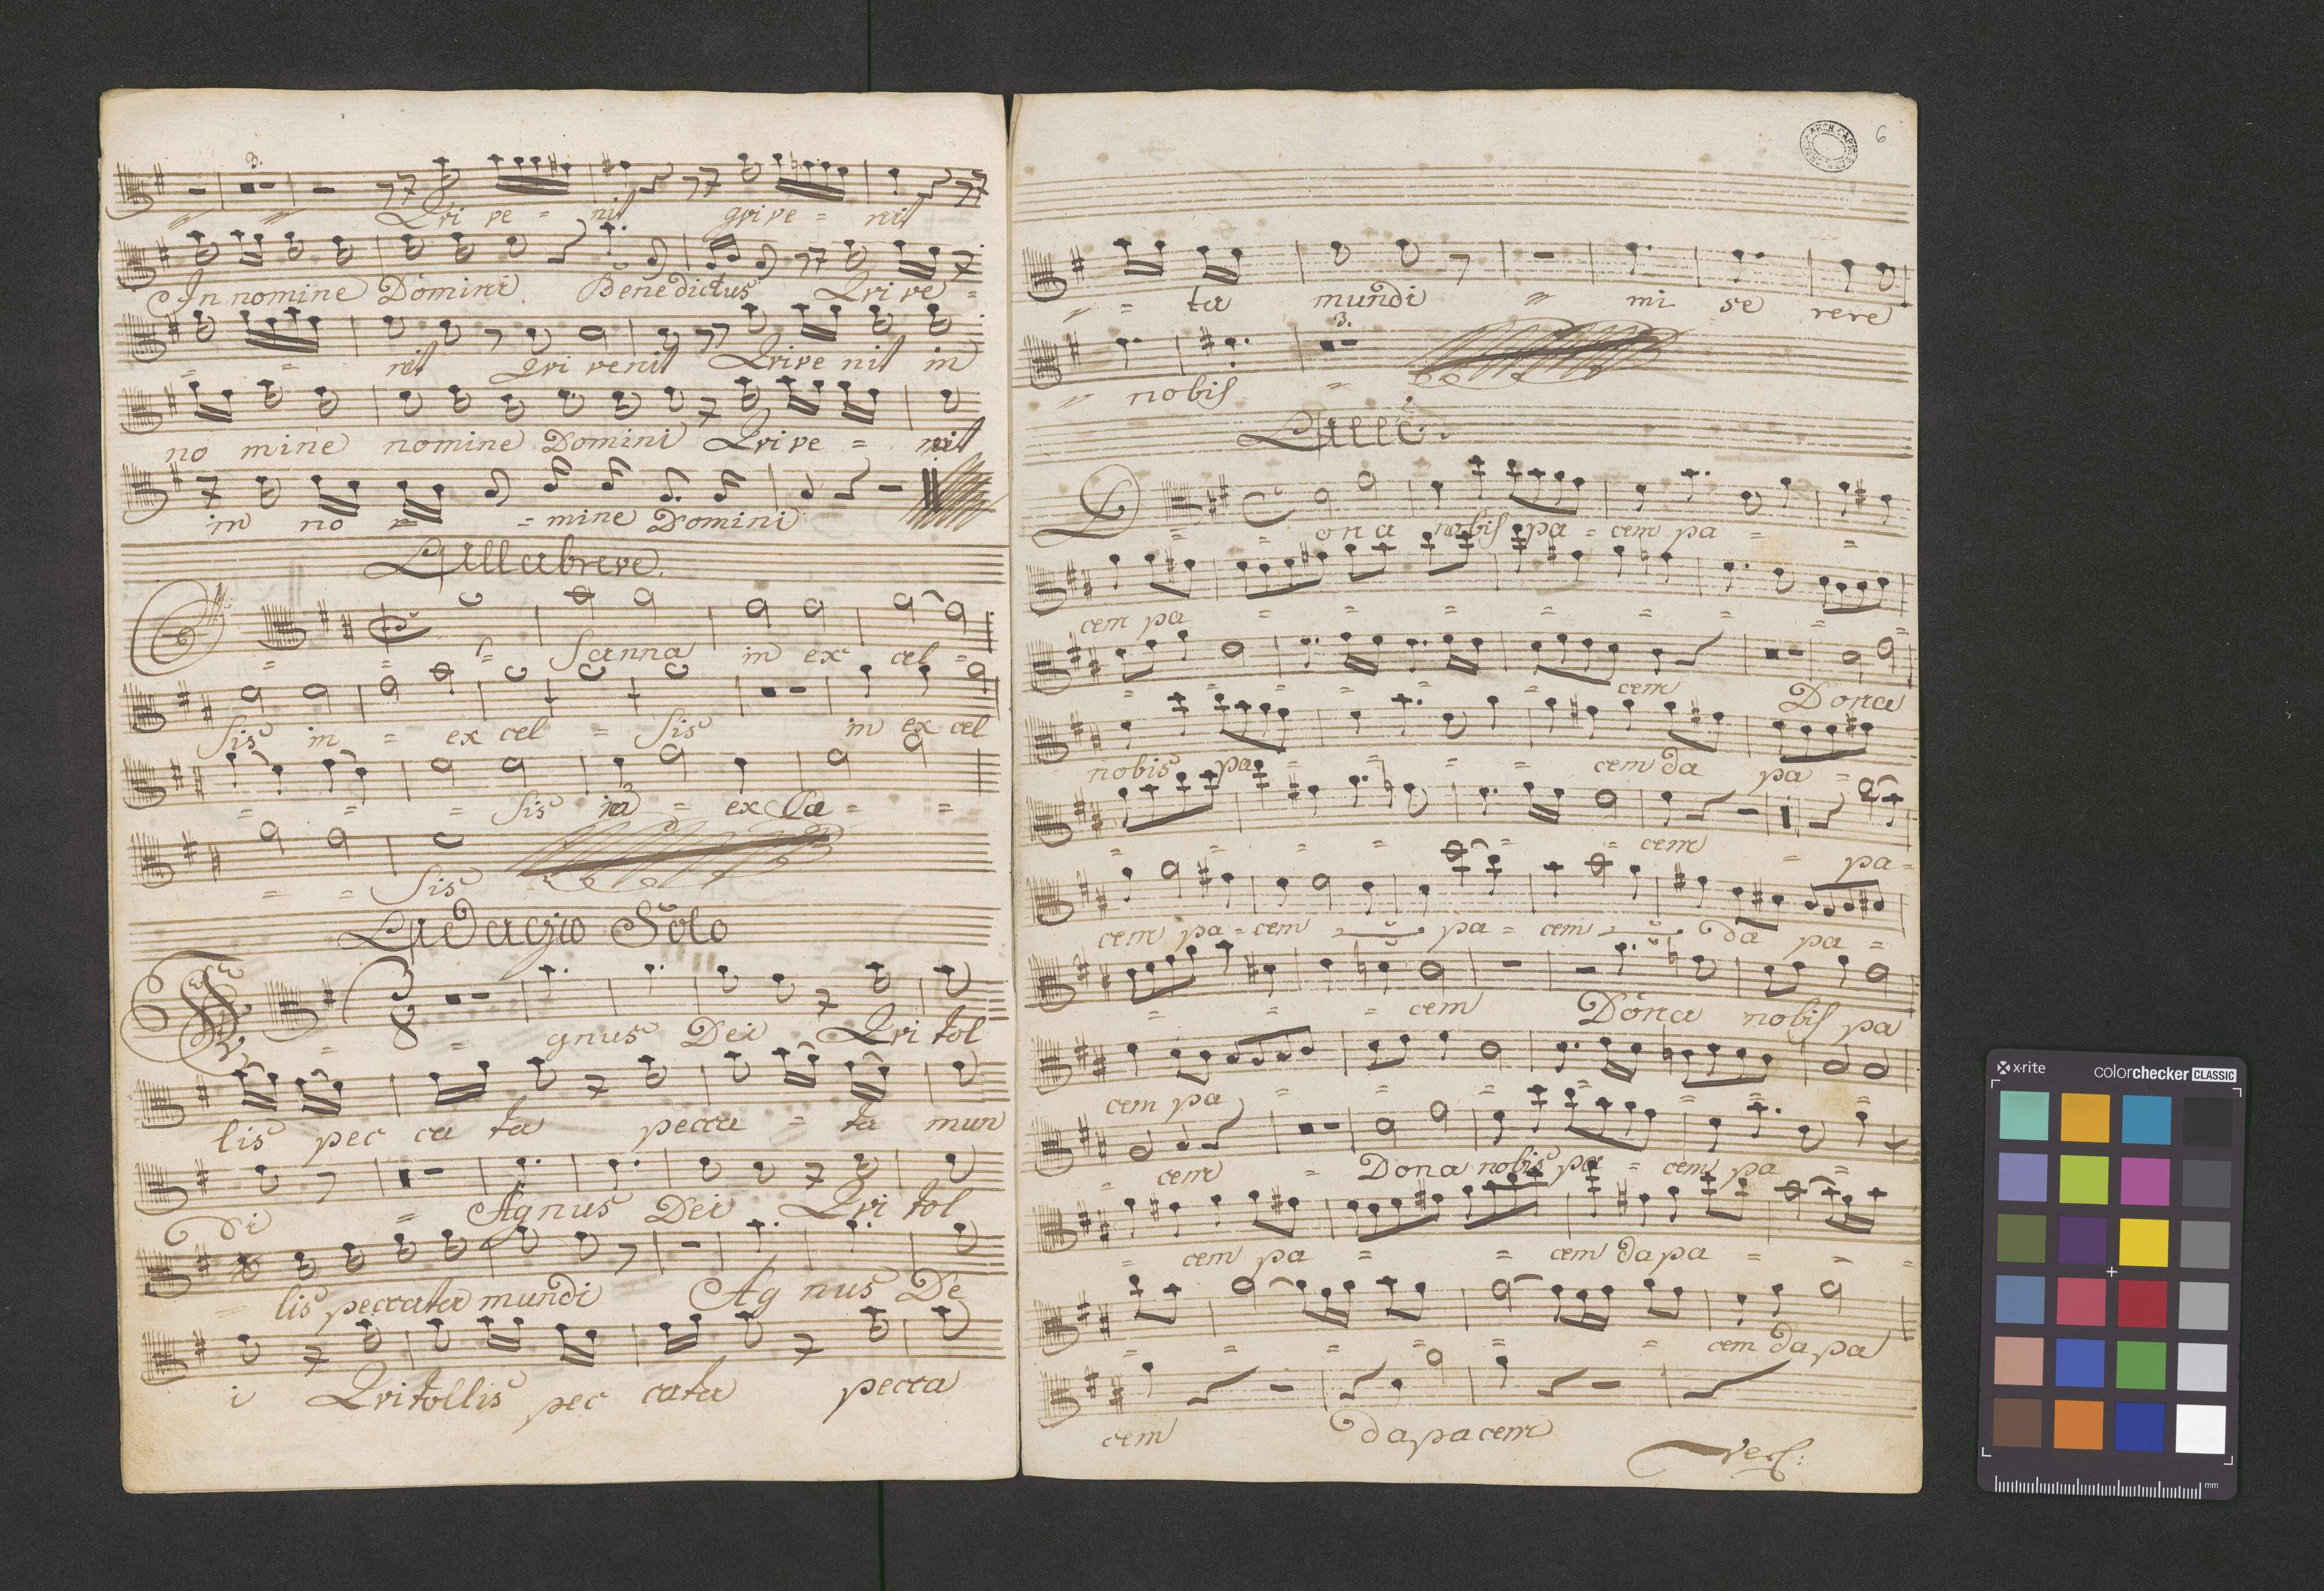 3.
Qui ve = nit qui ve = nit
In nomine Domini Benedictus Qui ve =
= = nit qui venit Qui ve nit in
no mine nomine Domini Qui ve = nit
in no = = mine Domini
Allabreve.
O = = = Sanna in ex cel =
sis in = ex cel = sis in ex cel
= = = sis in = ex = =
= = sis
Adagio Solo
A 3/8 = = gnus Dei Qui tol
lis pec ca ta pecca = ta mun
di = Agnus Dei Qui tol
= lis peccata mundi Ag nus De
i Qui tollis pec cata pecca
6
= = ta mundi = mi se rere
3.
= nobis =
Alle:
D = = ona nobis pa = cem pa = =
cem pa = = = = = = =
= = = = = = cem Dona
nobis pa = = = = cem da pa =
= = = = = = cem = pa =
cem pa = cem pa = cem da pa =
= = = cem Dona nobis pa
cem pa = = = = = =
= cem = Dona nobis pa = cem pa =
= cem pa = = cem da pa = = =
= = = = = = cem da pa
cem da pacem
Vers:
x-rite colorchecker CLASSIC
mm